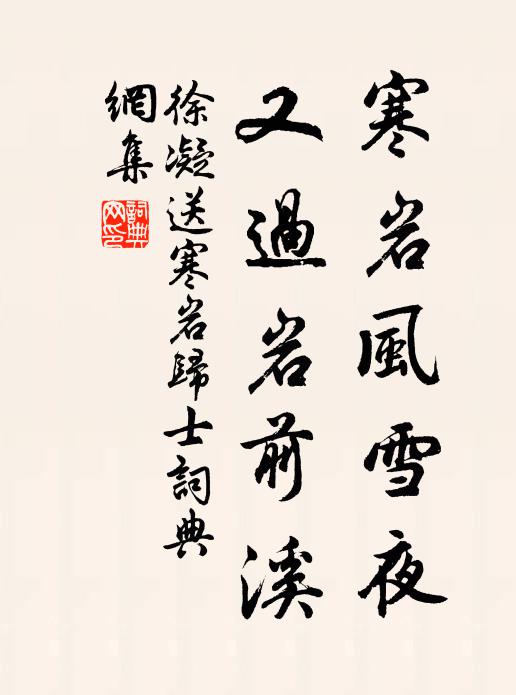 寒岩風雪夜
又過岩前溪
徐凝送寒岩歸士詞典
網集
詞典
网印